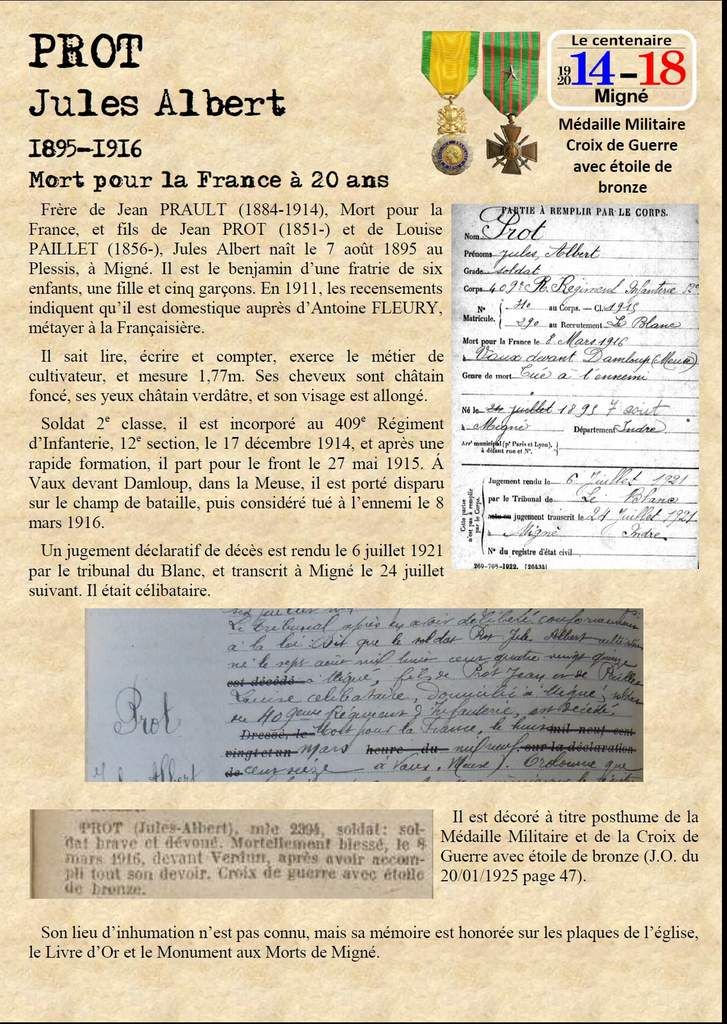 PROT
Jules Albert
1895-1916
Mort pour la France à 20 ans
Le centenaire
1920 14-18
Migné
Médaille Militaire
Croix de Guerre
avec étoile de
bronze
Frère de Jean PRAULT (1884-1914), Mort pour la
France, et fils de Jean PROT (1851-) et de Louise
PAILLET (1856-), Jules Albert naît le 7 août 1895 au
Plessis, à Migné. Il est le benjamin d'une fratrie de six
enfants, une fille et cinq garçons. En 1911, les recensements
indiquent qu'il est domestique auprès d'Antoine FLEURY,
métayer à la Françaisière.
Il sait lire, écrire et compter, exerce le métier de
cultivateur, et mesure 1,77m. Ses cheveux sont châtain
foncé, ses yeux châtain verdâtre, et son visage est allongé.
Soldat 2e classe, il est incorporé au 409e Régiment
d'Infanterie, 12e section, le 17 décembre 1914, et après une
rapide formation, il part pour le front le 27 mai 1915. Á
Vaux devant Damloup, dans la Meuse, il est porté disparu
sur le champ de bataille, puis considéré tué à l'ennemi le 8
mars 1916.
Un jugement déclaratif de décès est rendu le 6 juillet 1921
par le tribunal du Blanc, et transcrit à Migné le 24 juillet
suivant. Il était célibataire.
PARTIE À REMPLIR PAR LE CORPS.
Nom Prot
Prénoms Jules, Albert
Grade soldat
Corps 409e R. Régiment Infanterie
N° 310 au Corps. — Cl. 1915
Matricule. 290 au Recrutement Le Blanc
Mort pour la France le 8 Mars 1916
à Vaux devant Damloup (Meuse)
Genre de mort Tué à l'ennemi
Né le juillet 1895 7 août
à Migné Département Indre
Arr municipal (pr Paris et Lyon),
à défaut rue et N°.
Cette partie
n'est pas à remplir
par le Corps.
Jugement rendu le 6 Juillet 1921
par le Tribunal de Le Blanc
jugement transcrit le 24 Juillet 1921
à Migné Indre
N° du registre d'état civil
Le Tribunal après en avoir délibéré conformément
à la loi Dit que le soldat Prot Jules Albert
né le sept août mil huit cent quatre vingt quinze
est décédé à Migné, fils de Prot Jean et de
Louise célibataire, domicilié à Migné, soldat
au 409eme Régiment d'Infanterie, est décédé
Dressé, le Mort pour la France, le huit mil neuf cent
vingt et un mars heure du neuf sur la déclaration
de cent seize à Vaux, Meuse). Ordonne que
Prot
Albert
PROT (Jules-Albert), mle 2394, soldat: sol-
dat brave et dévoué. Mortellement blessé, le 8
mars 1916, devant Verdun, après avoir accom-
pli tout son devoir. Croix de guerre avec étoile
de bronze.
Il est décoré à titre posthume de la
Médaille Militaire et de la Croix de
Guerre avec étoile de bronze (J.O. du
20/01/1925 page 47).
Son lieu d'inhumation n'est pas connu, mais sa mémoire est honorée sur les plaques de l'église,
le Livre d'Or et le Monument aux Morts de Migné.